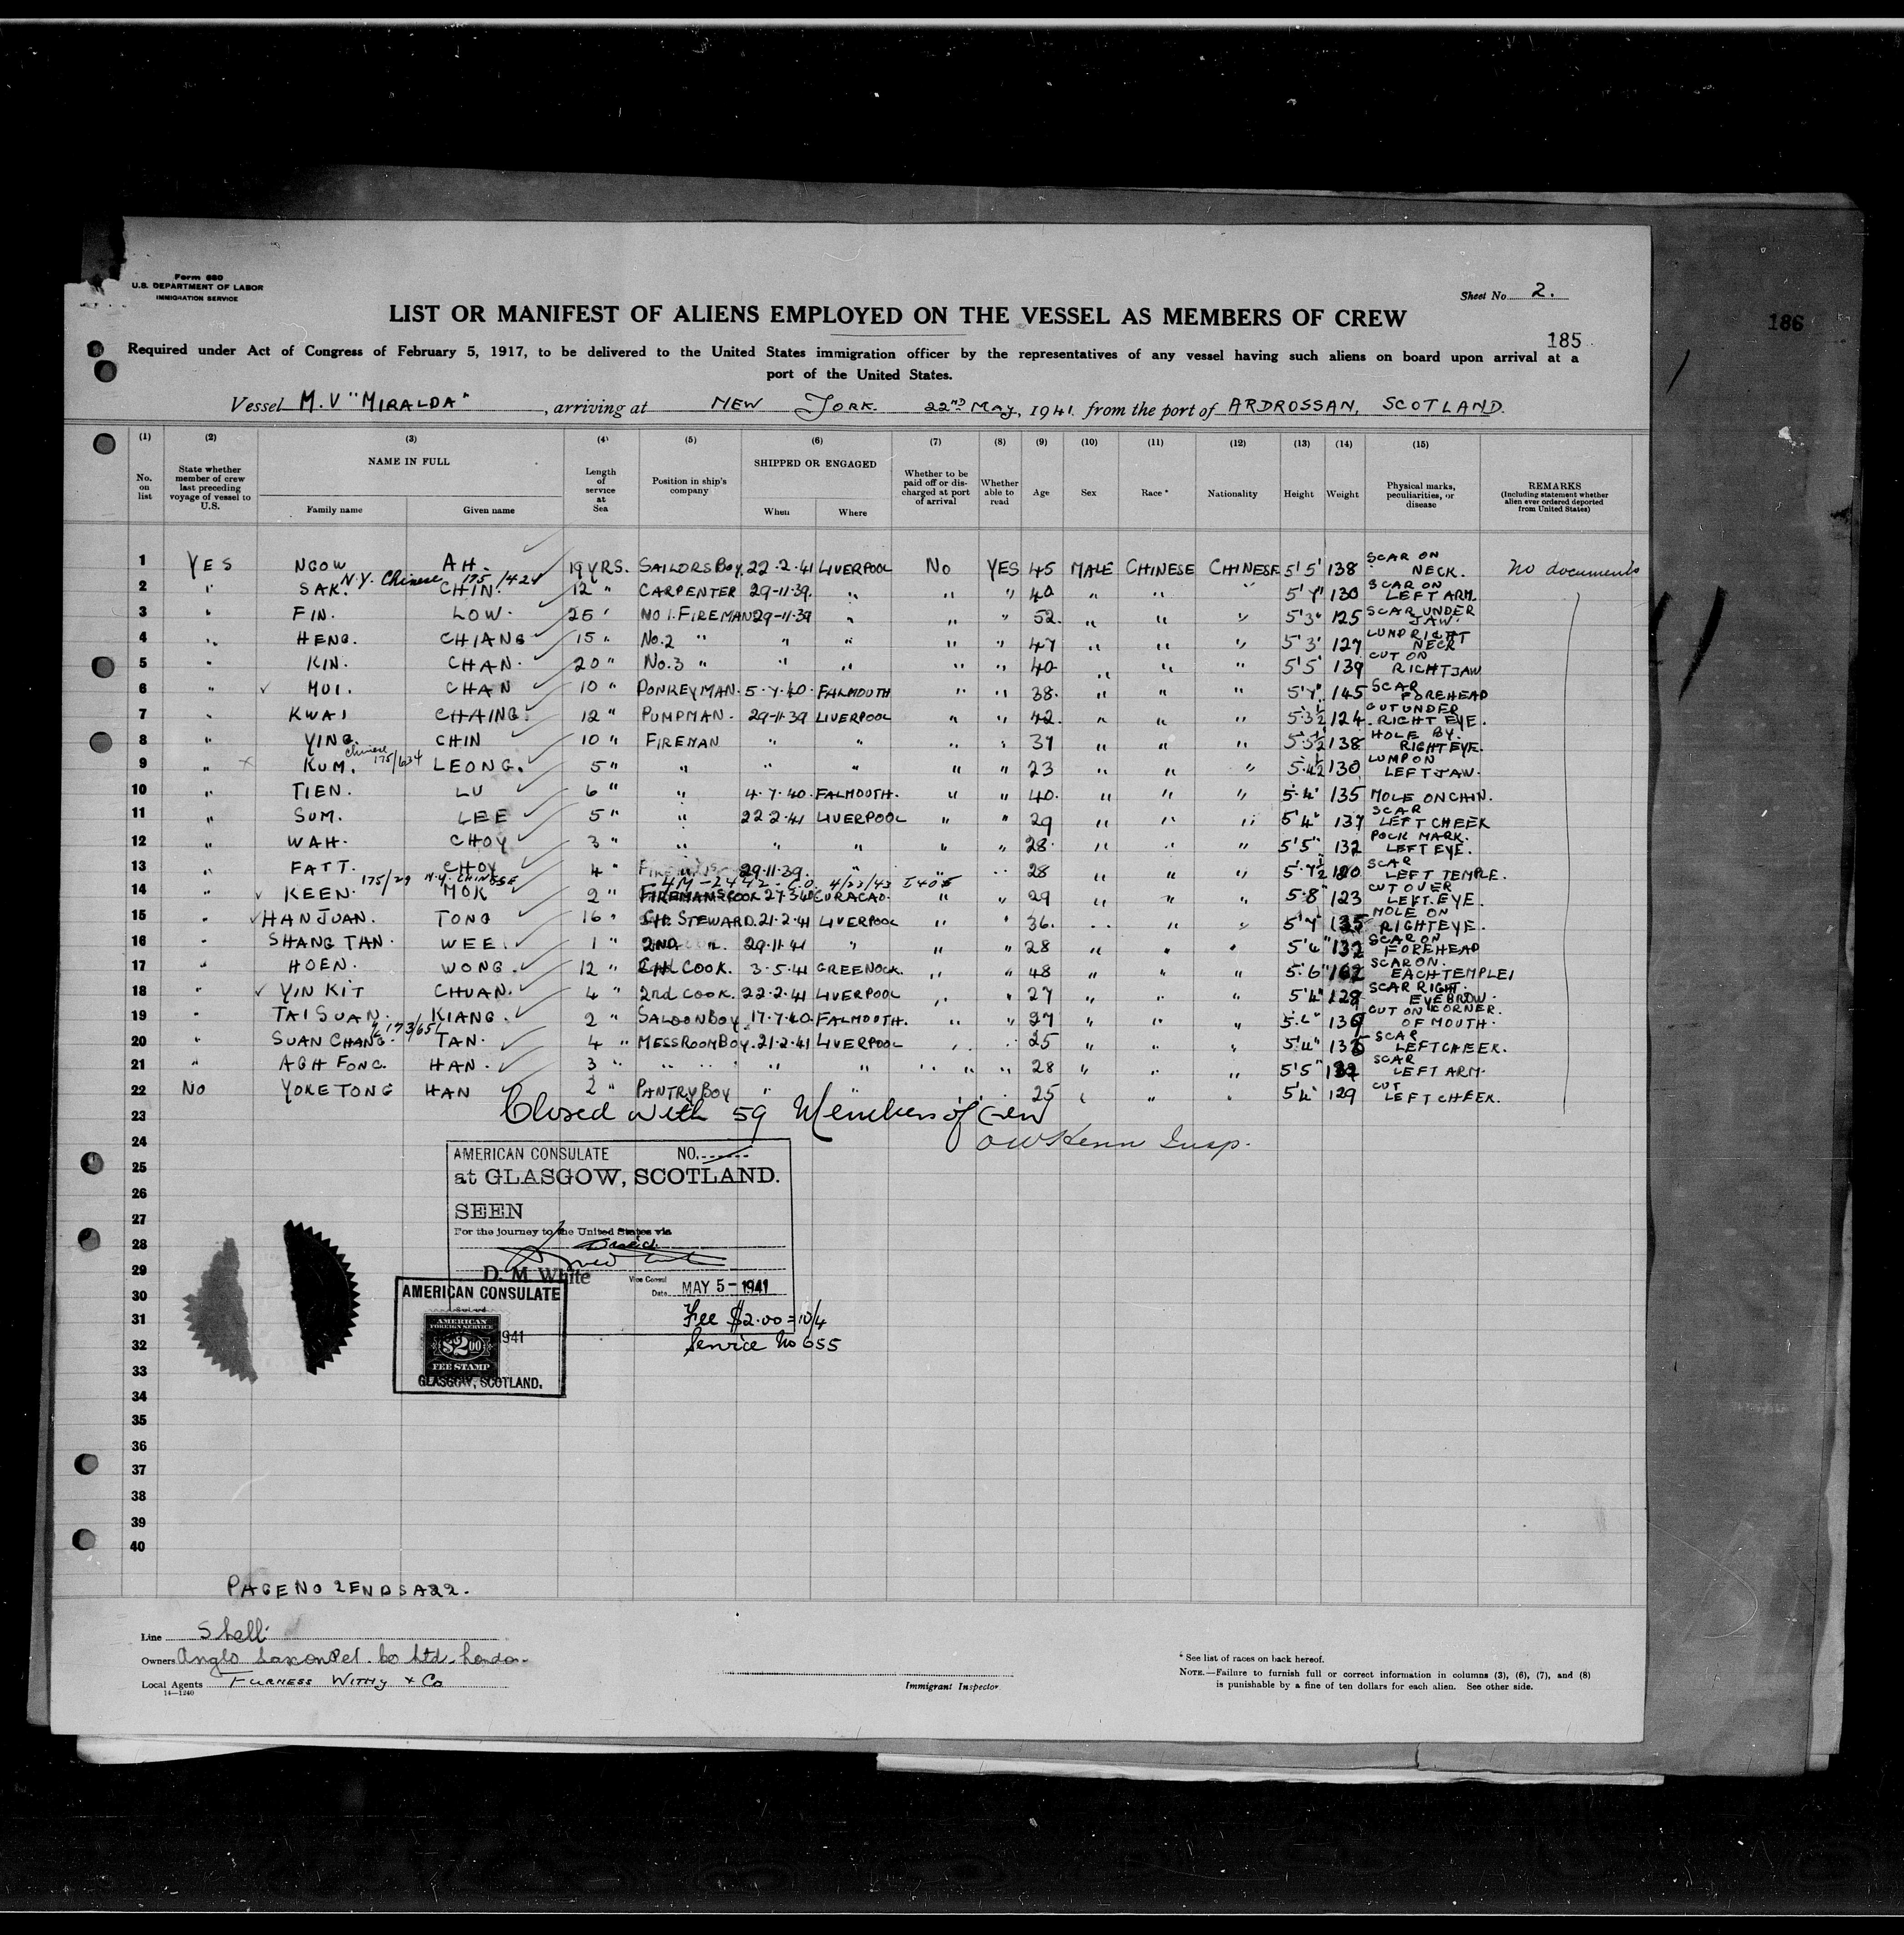 Form 680
U.S. DEPARTMENT OF LABOR
IMMIGRATION SERVICE
Sheet No. 2.
LIST OR MANIFEST OF ALIENS EMPLOYED ON THE VESSEL AS MEMBERS OF CREW
185
186
Required under Act of Congress of February 5, 1917, to be delivered to the United States immigration officer by the representatives of any vessel having such aliens on board upon arrival at a
port of the United States.
Vessel M.V "MIRALDA", arriving at NEW YORK. 22ND MAY, 1941. from the port of ARDROSSAN, SCOTLAND.
(1) (2) (3) (4) (5) (6) (7) (8) (9) (10) (11) (12) (13) (14) (15)
No. on list
State whether member of crew last preceding voyage of vessel to U.S.
NAME IN FULL
Family name Given name
Length of service at Sea
Position in ship's company
SHIPPED OR ENGAGED
When Where
Whether to be paid off or discharged at port of arrival
Whether able to read
Age
Sex
Race *
Nationality
Height
Weight
Physical marks, peculiarities, or disease
REMARKS
(Including statement whether alien ever ordered deported from United States)
1 YES NGOW AH. 19 YRS. SAILORS BOY 22.2.41 LIVERPOOL NO YES 45 MALE CHINESE CHINESE 5'5" 138 SCAR ON NECK. No documents
N.Y. Chinese 175/424
2 " SAK. CHIN. 12 " CARPENTER 29-11-39. " " " 40 " " " 5'7" 130 SCAR ON LEFT ARM.
3 " FIN. LOW. 25 " NO 1. FIREMAN 29-11-39 " " " 52. " " " 5'3" 125 SCAR UNDER JAW.
4 " HENG. CHIANG 15 " No.2 " " " " " 47 " " " 5'3" 127 LUMP RIGHT NECK
5 " KIN. CHAN. 20 " No.3 " " " " " 40 " " " 5'5" 139 CUT ON RIGHT JAW
6 " MUI. CHAN 10 " DONKEYMAN. 5.7.40. FALMOUTH " " 38. " " " 5'7" 145 SCAR FOREHEAD
7 " KWAI CHAING. 12 " PUMPMAN. 29-11-39 LIVERPOOL " " 42. " " " 5'3½ 124 CUT UNDER RIGHT EYE.
8 " YING. CHIN 10 " FIREMAN " " " " 37 " " " 5'5½ 138 HOLE BY. RIGHT EYE.
Chinese 175/634
9 " KUM. LEONG. 5 " " " " " " 23 " " " 5'4½ 130 LUMP ON LEFT JAW.
10 " TIEN. LU 6 " " 4.7.40. FALMOUTH. " " 40. " " " 5'4" 135 MOLE ON CHIN.
11 " SUM. LEE 5 " " 22.2.41 LIVERPOOL " " 29 " " " 5'4" 137 SCAR LEFT CHEEK
12 " WAH. CHOY 3 " " " " " " 28. " " " 5'5" 132 POCK MARK. LEFT EYE.
13 " FATT. CHOY 4 " 29.11.39. " " " 28 " " " 5'7½ SCAR LEFT TEMPLE.
175/29 N.Y. CHINESE 4/23/43
14 " KEEN. MOK 2 " FIREMANS COOK CURACAO. " " 29 " " " 5'8" 123 CUT OVER LEFT EYE.
15 " HAN JUAN. TONG 16 " CH. STEWARD. 21.2.41 LIVERPOOL " " 36. " " " 5'7" 135 MOLE ON RIGHT EYE.
16 " SHANG TAN. WEE. 1 " 2ND " 29.11.41 " " " 28 " " " 5'4" 132 SCAR ON FOREHEAD
17 " HOEN. WONG. 12 " CH. COOK. 3.5.41 GREENOCK. " " 48 " " " 5'6" 162 SCAR ON. EACH TEMPLE
18 " YIN KIT CHUAN. 4 " 2nd COOK. 22.2.41 LIVERPOOL " " 27 " " " 5'4" 129 SCAR RIGHT. EYEBROW.
19 " TAI SUAN. KIANG. 2 " SALOON BOY. 17.7.40. FALMOUTH. " " 27 " " " CUT ON CORNER. OF MOUTH.
173/651
20 " SUAN CHANG. TAN. 4 " MESSROOM BOY. 21.2.41 LIVERPOOL " " 25 " " " 5'4" SCAR LEFT CHEEK.
21 " AGH FONG. HAN. 3 " " " " " " 28 " " " 5'5" SCAR LEFT ARM.
22 NO YOKE TONG HAN 2 " PANTRY BOY " " " " 25 " " " 5'4" 129 CUT LEFT CHEEK.
23
Closed with 59 Members of Crew
24
Insp.
25
26
27
28
29
30
31
32
33
34
35
36
37
38
39
40
AMERICAN CONSULATE NO.
at GLASGOW, SCOTLAND.
SEEN
For the journey to the United States via
D. M. White
Vice Consul
Date MAY 5 - 1941
Fee $2.00 = 10/4
Service No 655
AMERICAN CONSULATE
AMERICAN
FOREIGN SERVICE
$2.00
FEE STAMP
1941
GLASGOW, SCOTLAND.
PAGE NO 2 ENDS A 22.
Line Shell
Owners Anglo Saxon Pet. Co Ltd. London.
Local Agents FURNESS WITHY & Co
14—1240
Immigrant Inspector
* See list of races on back hereof.
NOTE.—Failure to furnish full or correct information in columns (3), (6), (7), and (8)
is punishable by a fine of ten dollars for each alien. See other side.